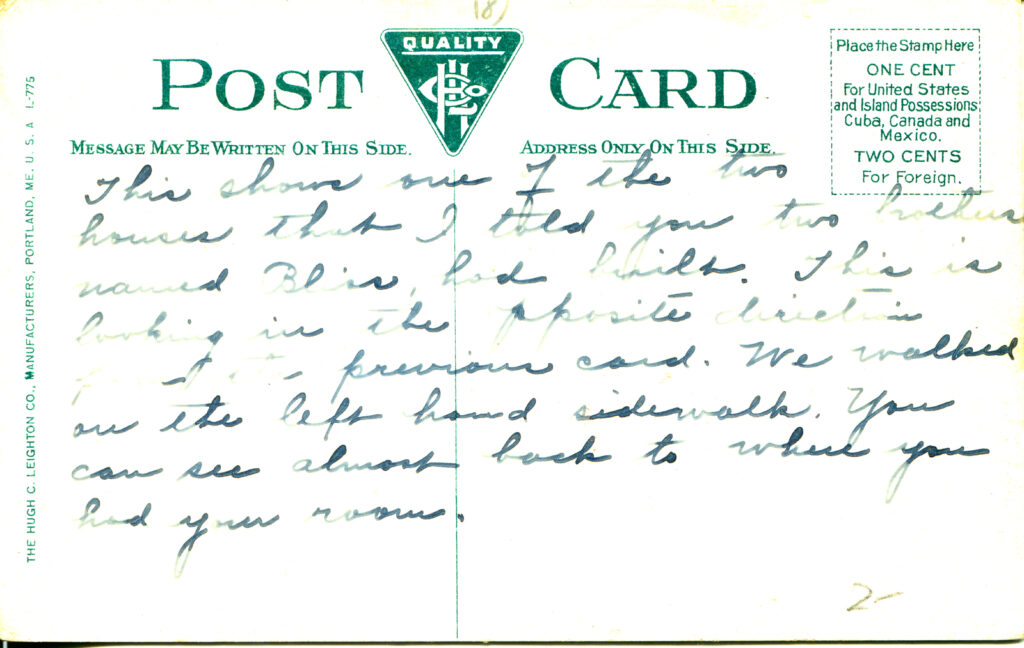 18)
POST CARD
QUALITY
MESSAGE MAY BE WRITTEN ON THIS SIDE.
ADDRESS ONLY ON THIS SIDE.
Place the Stamp Here
ONE CENT
For United States
and Island Possessions
Cuba, Canada and
Mexico.
TWO CENTS
For Foreign.
THE HUGH C. LEIGHTON CO., MANUFACTURERS, PORTLAND, ME. U. S. A L-775
This shows one of the two
houses that I told you two brothers
named Bliss, had built. This is
looking in the opposite direction
previous card. We walked
on the left hand sidewalk. You
can see almost back to where you
had your room.
2-